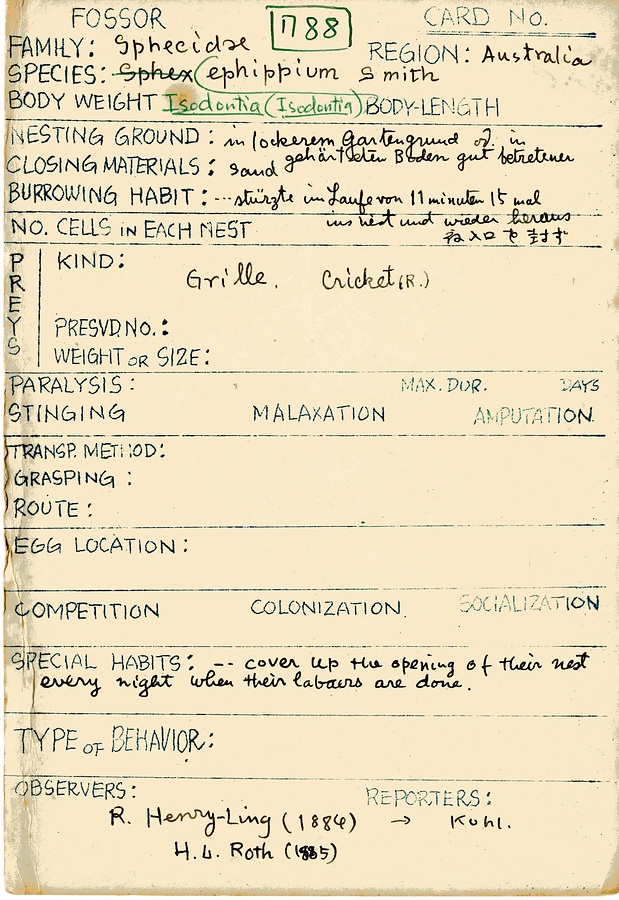 FOSSOR 1788 CARD No.
FAMILY: Sphecidae REGION: Australia
SPECIES: Sphex (ephippium Smith
BODY WEIGHT Isodontia (Isodontia) BODY-LENGTH
NESTING GROUND: in lockerem Gartengrund od. in
CLOSING MATERIALS: sand gehärteten Boden gut betretener
BURROWING HABIT: --- stürzte im Laufe von 11 minuten 15 mal
NO. CELLS in EACH NEST ins nest und wieder heraus
夜入口を封ず
PREYS
KIND:
Grille. Cricket (R.)
PRESVD NO.:
WEIGHT OR SIZE:
PARALYSIS: MAX. DUR. DAYS
STINGING MALAXATION AMPUTATION
TRANSP. METHOD:
GRASPING:
ROUTE:
EGG LOCATION:
COMPETITION COLONIZATION SOCIALIZATION
SPECIAL HABITS: -- cover up the opening of their nest
every night when their labours are done.
TYPE OF BEHAVIOR:
OBSERVERS: REPORTERS:
R. Henry-Ling (1884) → Kohl.
H.L. Roth (1885)